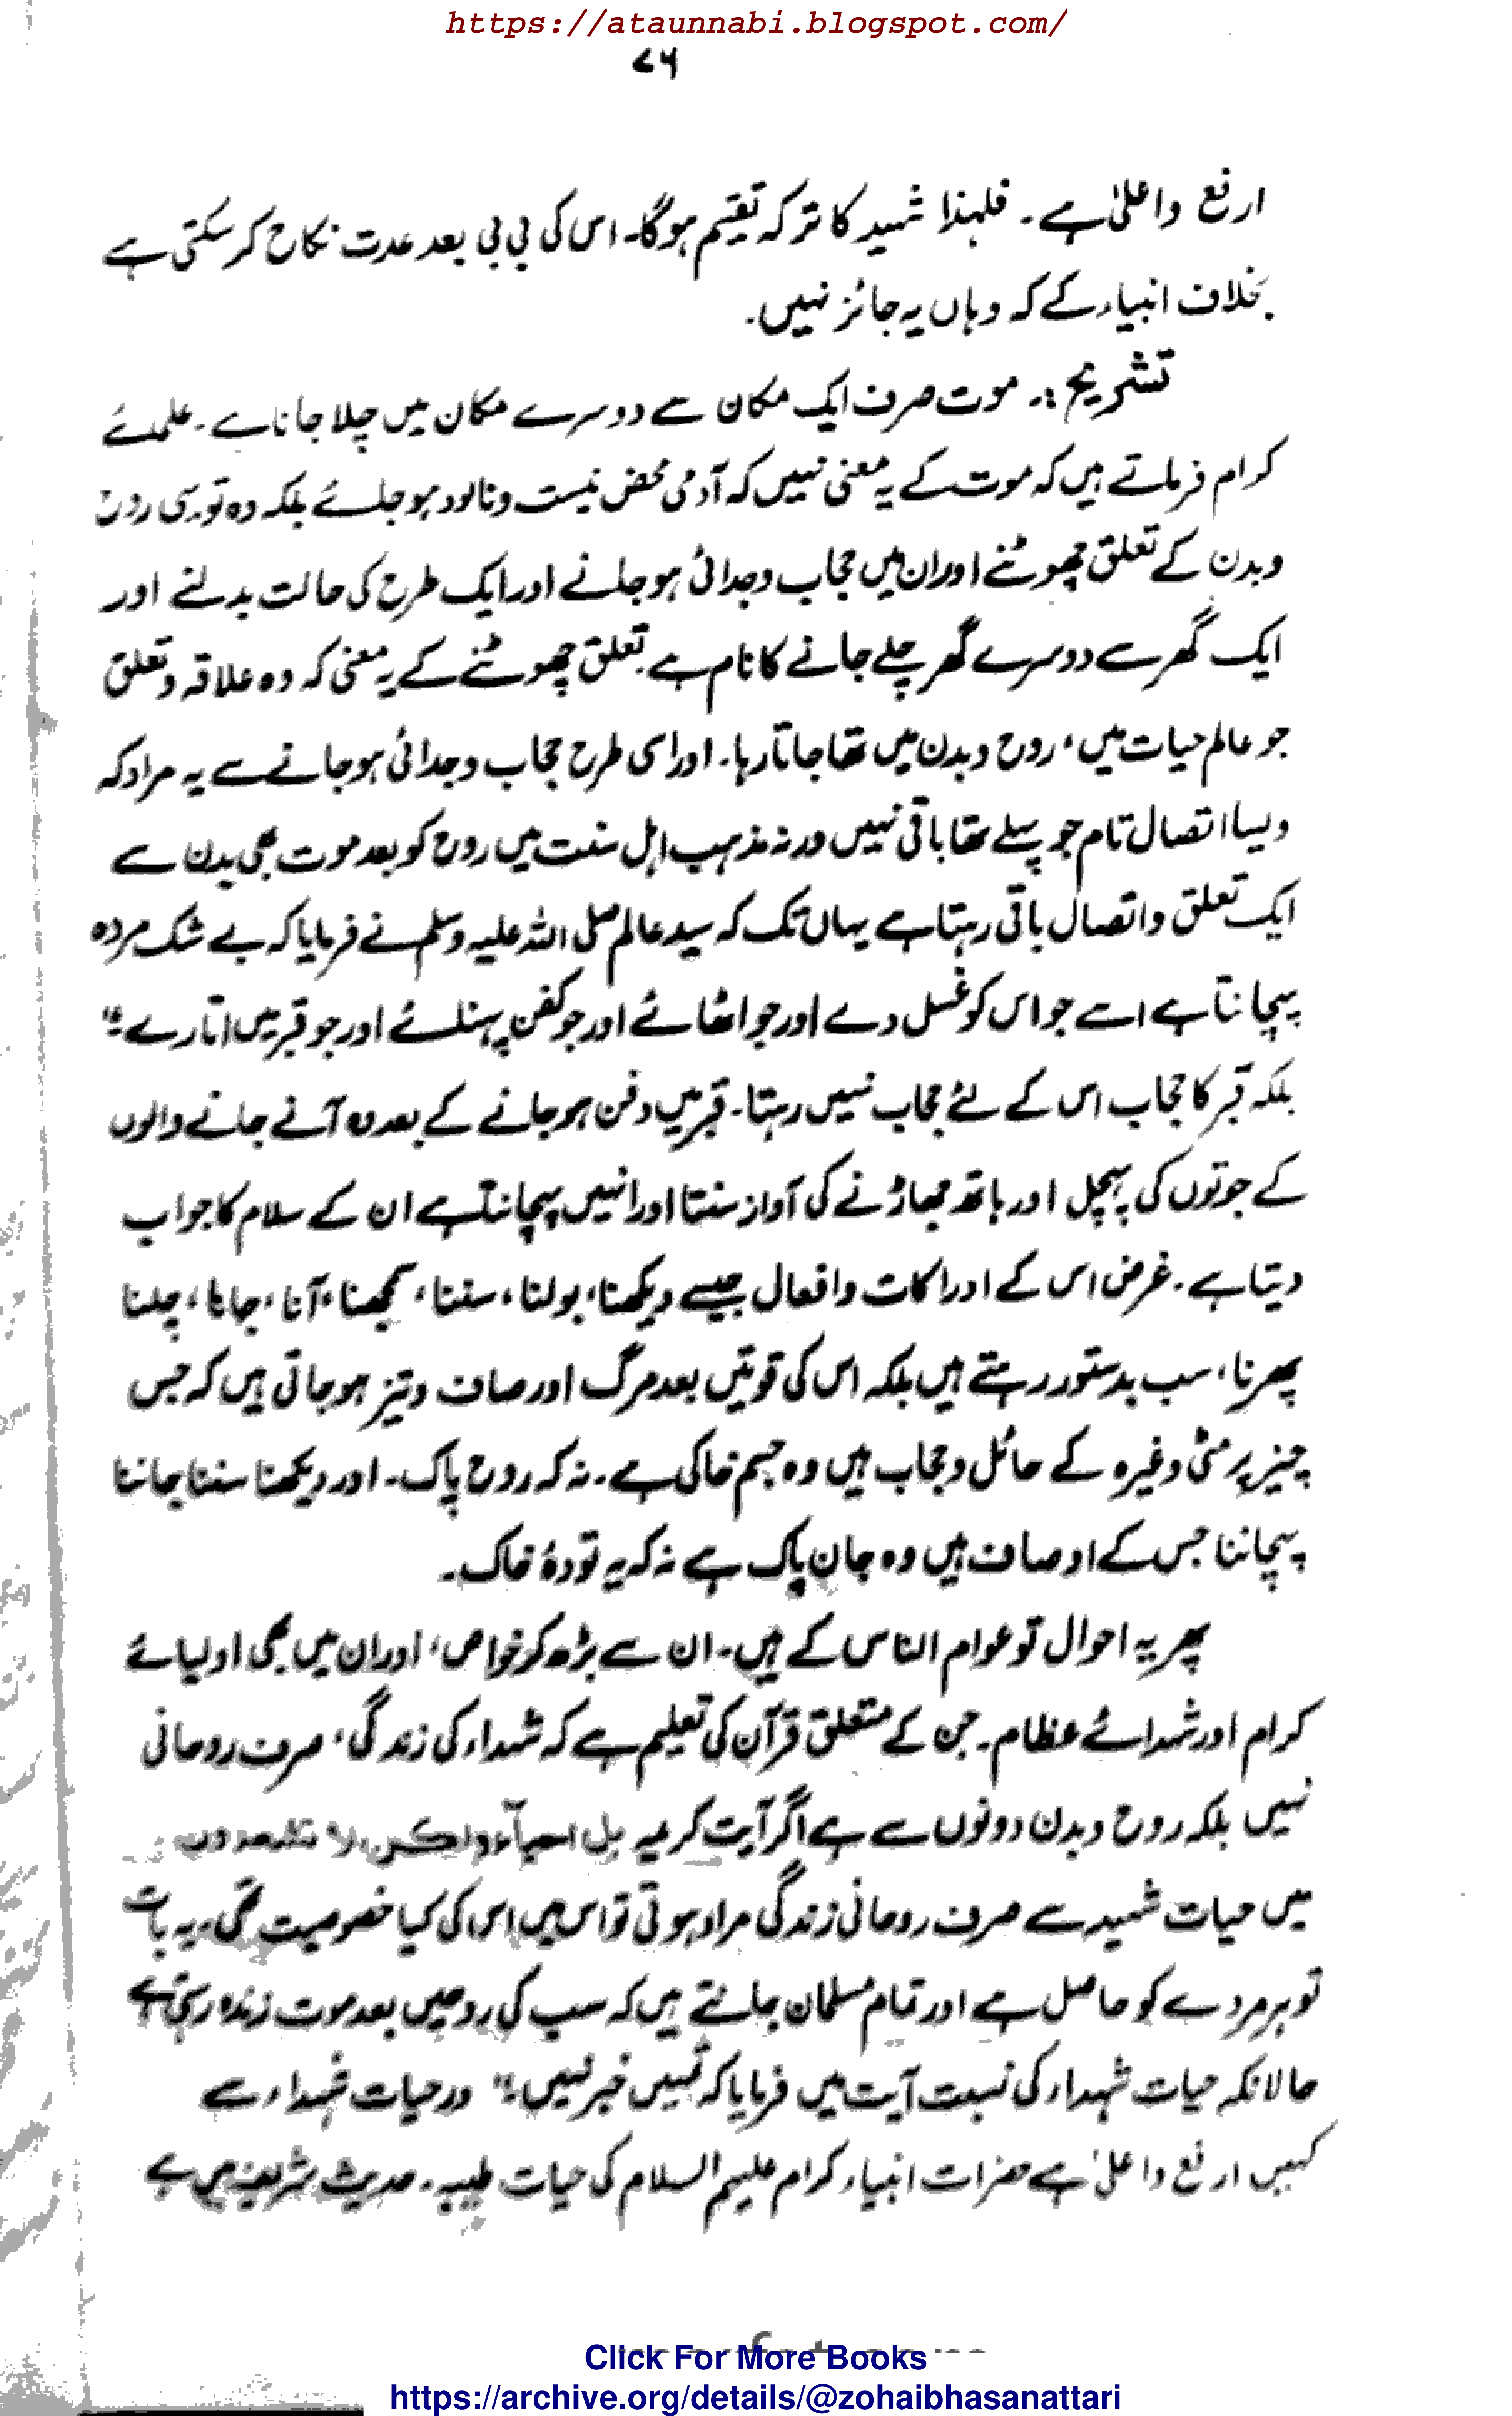 https://ataunnabi.blogspot.com/
۷۶
ارفع واعلیٰ ہے۔ فلہذا شہید کا ترکہ تقسیم ہوگا۔ اس کی بی بی بعد عدت نکاح کرسکتی ہے
بخلاف انبیاء کے کہ وہاں یہ جائز نہیں۔
تشریح :۔ موت صرف ایک مکان سے دوسرے مکان میں چلا جانا ہے۔ علمائے
کرام فرماتے ہیں کہ موت کے یہ معنی نہیں کہ آدمی محض نیست ونابود ہوجائے بلکہ وہ تو یہی روح
وبدن کے تعلق چھوٹنے اور ان میں حجاب وجدائی ہوجانے اور ایک طرح کی حالت بدلنے اور
ایک گھر سے دوسرے گھر چلے جانے کا نام ہے۔ تعلق چھوٹنے کے یہ معنی کہ وہ علاقہ وتعلق
جو عالم حیات میں، روح وبدن میں تھا جاتا رہا۔ اور اسی طرح حجاب وجدائی ہوجانے سے یہ مراد کہ
ویسا اتصال تام جو پہلے تھا باقی نہیں ورنہ مذہب اہل سنت میں روح کو بعد موت بھی بدن سے
ایک تعلق واتصال باقی رہتا ہے یہاں تک کہ سید عالم صلی اللہ علیہ وسلم نے فرمایا کہ بے شک مردہ
پہچانتا ہے اسے جو اس کو غسل دے اور جو اٹھائے اور جو کفن پہنائے اور جو قبر میں اتارے۔"
بلکہ قبر کا حجاب اس کے لئے حجاب نہیں رہتا۔ قبر میں دفن ہوجانے کے بعد وہ آنے جانے والوں
کے جوتوں کی پہچل اور ہاتھ جھاڑنے کی آواز سنتا اور انہیں پہچانتا ہے ان کے سلام کا جواب
دیتا ہے۔ غرض اس کے ادراکات وافعال جیسے دیکھنا، بولنا، سننا، سمجھنا، آنا، جانا، چلنا
پھرنا، سب بدستور رہتے ہیں بلکہ اس کی قوتیں بعد مرگ اور صاف وتیز ہوجاتی ہیں کہ جس
چیز پر مٹی وغیرہ کے حائل وحجاب ہیں وہ جسم خاکی ہے۔ نہ کہ روح پاک۔ اور دیکھنا سننا جاننا
پہچاننا جس کے اوصاف ہیں وہ جان پاک ہے نہ کہ یہ تودۂ خاک۔
پھر یہ احوال تو عوام الناس کے ہیں۔ ان سے بڑھ کر خواص، اور ان میں بھی اولیائے
کرام اور شہدائے عظام۔ جن کے متعلق قرآن کی تعلیم ہے کہ شہداء کی زندگی، صرف روحانی
نہیں بلکہ روح وبدن دونوں سے ہے اگر آیت کریمہ بل احیآء ولکن لا تشعرون
میں حیات شہید سے صرف روحانی زندگی مراد ہوتی تو اس میں اس کی کیا خصوصیت تھی۔ یہ بات
تو ہر مردے کو حاصل ہے اور تمام مسلمان جانتے ہیں کہ سب کی روحیں بعد موت زندہ رہتی ہے
حالانکہ حیات شہداء کی نسبت آیت میں فرمایا کہ تمہیں خبر نہیں۔" ور حیات شہداء سے
کہیں ارفع واعلیٰ ہے حضرات انبیاء کرام علیہم السلام کی حیات طیبہ۔ حدیث شریف میں ہے
Click For More Books
https://archive.org/details/@zohaibhasanattari